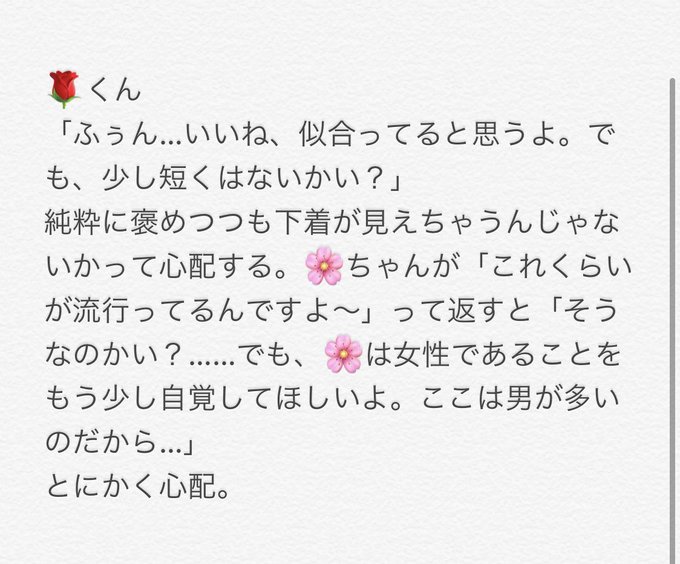 🌹くん
「ふぅん...いいね、似合ってると思うよ。で
も、少し短くはないかい？」
純粋に褒めつつも下着が見えちゃうんじゃな
いかって心配する。🌸ちゃんが「これくらい
が流行ってるんですよ〜」って返すと「そう
なのかい？......でも、🌸は女性であることを
もう少し自覚してほしいよ。ここは男が多い
のだから...」
とにかく心配。